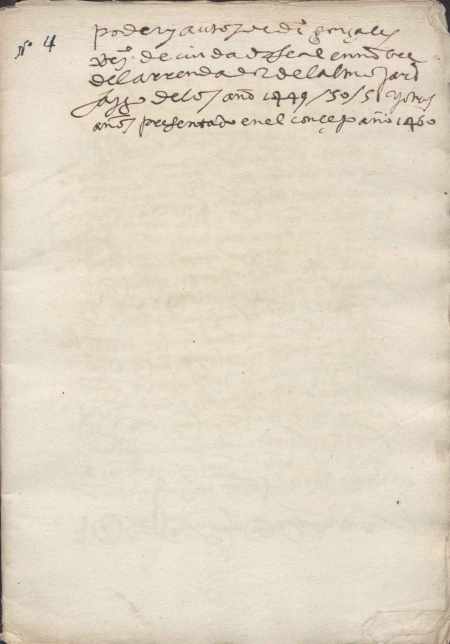 Nº 4
poder y autos de di gonçales
de ciudad Real en nonbre
del arrendador del almoxari
fazgo de los años 1449 / 50 / 51 y otros
años presentado en el conçejo año 1460